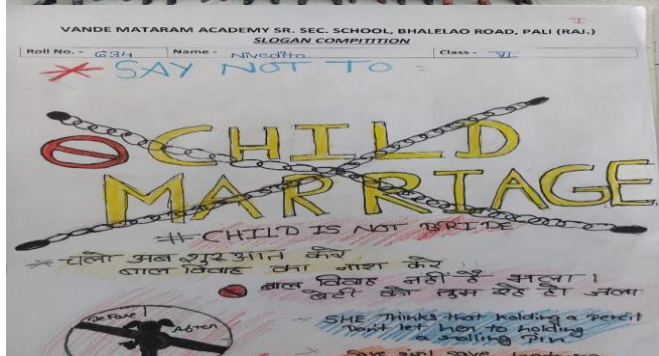 I
VANDE MATARAM ACADEMY SR. SEC. SCHOOL, BHALELAO ROAD, PALI (RAJ.)
SLOGAN COMPITITION
Roll No. - 634 Name - Nivedita Class - VI
SAY NOT TO =
CHILD
MARRIAGE
# CHILD IS NOT BRIDE
चलो अब शुरुआत करे
बाल विवाह का नाश करे
बाल विवाह नहीं है भला ।
बेटी को तुम
Before After
SHE Thinks that holding a pencil
Don't let her to holding
a rolling pin
Save girl save